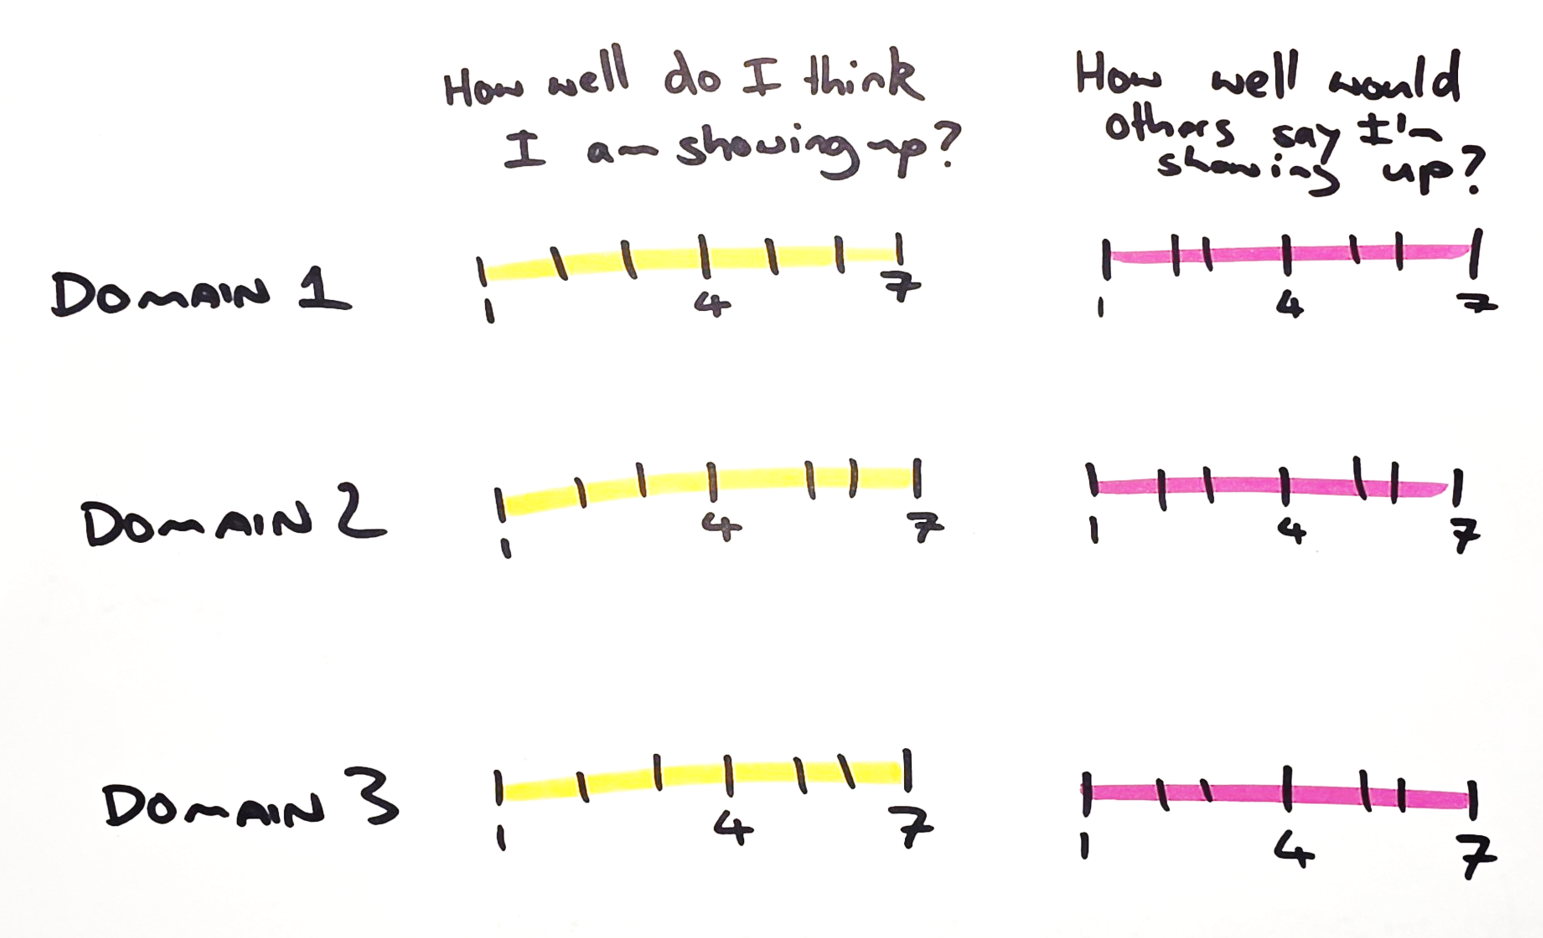 How well do I think
I am showing up?
How well would
others say I'm
showing up?
DOMAIN 1
1 4 7
1 4 7
DOMAIN 2
1 4 7
1 4 7
DOMAIN 3
1 4 7
1 4 7